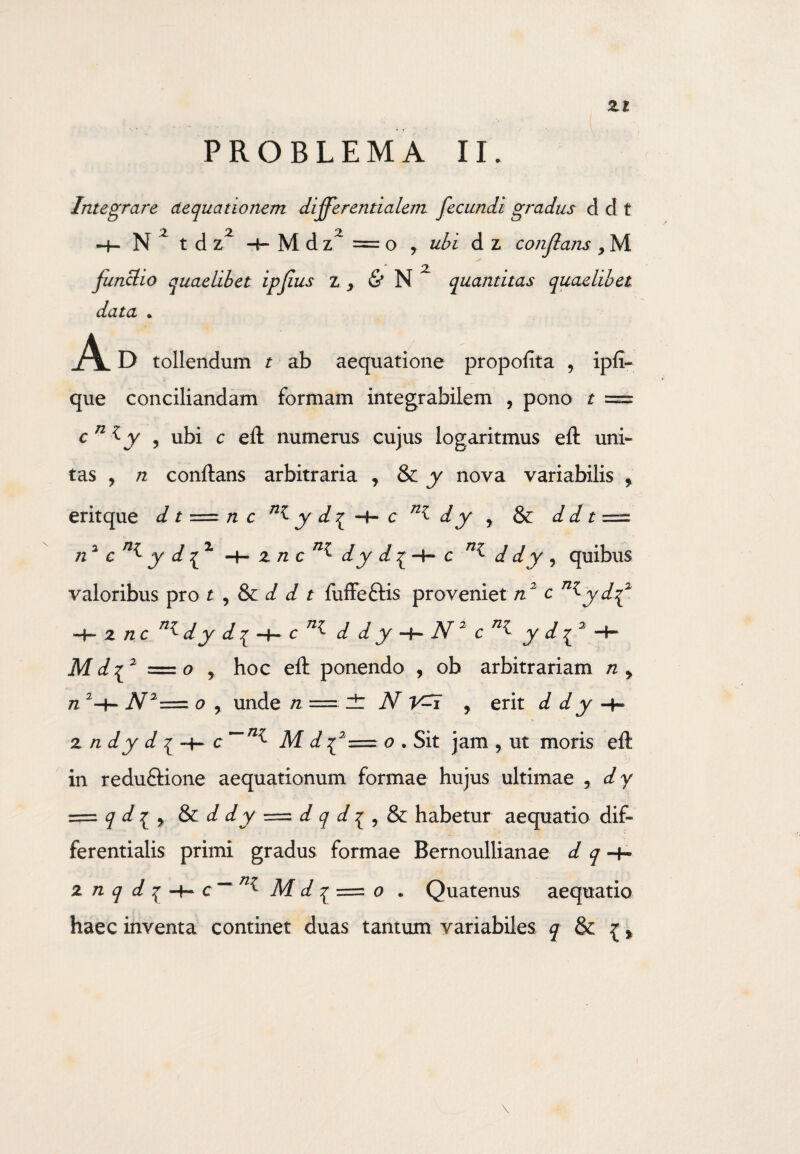 21
PROBLEMA II.
Integrare aequationem differentialem ſecundi gradus d d t
+ N² t d z² + M d z² = o , ubi d z conſtans , M
functio quaelibet ipſius z , & N² quantitas quaelibet
data .
AD tollendum t ab aequatione propoſita , ipſi-
que conciliandam formam integrabilem , pono t =
c^{nz} y , ubi c eſt numerus cujus logaritmus eſt uni-
tas , n conſtans arbitraria , & y nova variabilis ,
eritque d t = n c^{nz} y d z + c^{nz} d y , & d d t =
n² c^{nz} y d z² + 2 n c^{nz} d y d z + c^{nz} d d y , quibus
valoribus pro t , & d d t ſuffectis proveniet n² c^{nz} y d z²
+ 2 n c^{nz} d y d z + c^{nz} d d y + N² c^{nz} y d z² +
M d z² = o , hoc eſt ponendo , ob arbitrariam n ,
n² + N² = o , unde n = ± N √-1 , erit d d y +
2 n d y d z + c^{-nz} M d z² = o . Sit jam , ut moris eſt
in reductione aequationum formae hujus ultimae , d y
= q d z , & d d y = d q d z , & habetur aequatio dif-
ferentialis primi gradus formae Bernoullianae d q +
2 n q d z + c^{-nz} M d z = o . Quatenus aequatio
haec inventa continet duas tantum variabiles q & z ,